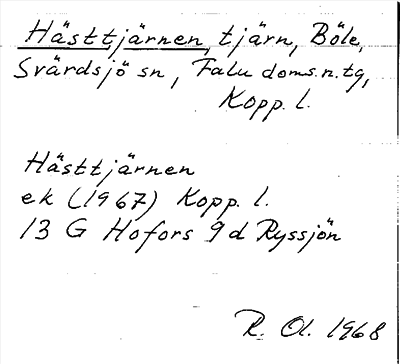 Hästtjärnen, tjärn, Böle,
Svärdsjö sn, Falu doms.n.tg,
Kopp. l.
Hästtjärnen
ek (1967) Kopp. l.
13 G Hofors 9d Ryssjön
R. Ol. 1968